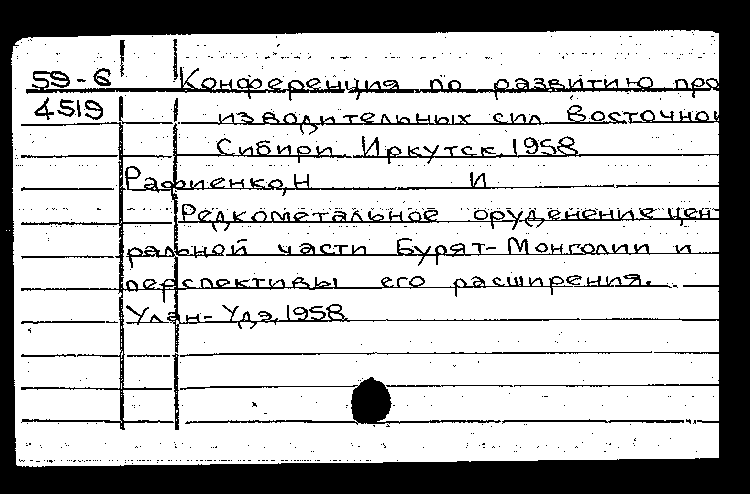 59-6 Конференция по развитию про
4519 изводительных сил Восточной
Сибири. Иркутск, 1958
Рафиенко, Н И
Редкометальное оруденение цен
ральной части Бурят-Монголии и
перспективы его расширения.
Улан-Удэ, 1958